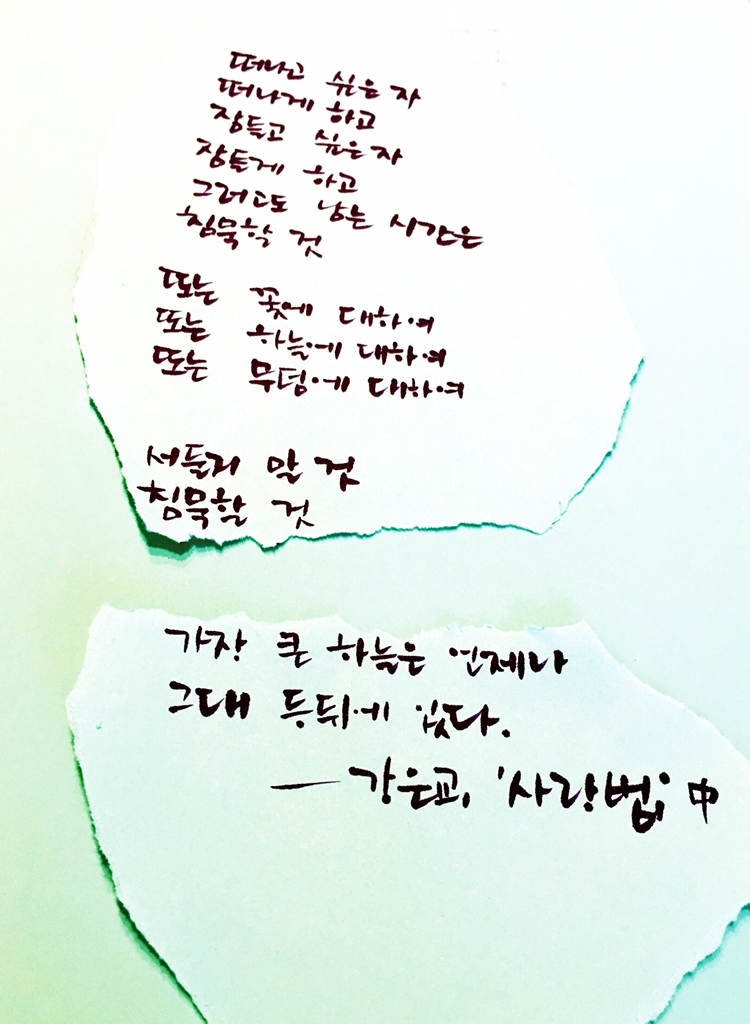 떠나고 싶은 자
떠나게 하고
잠들고 싶은 자
잠들게 하고
그러고도 남는 시간은
침묵할 것
또는 꽃에 대하여
또는 하늘에 대하여
또는 무덤에 대하여
서둘지 말 것
침묵할 것
가장 큰 하늘은 언제나
그대 등뒤에 있다.
— 강은교, '사랑법' 中